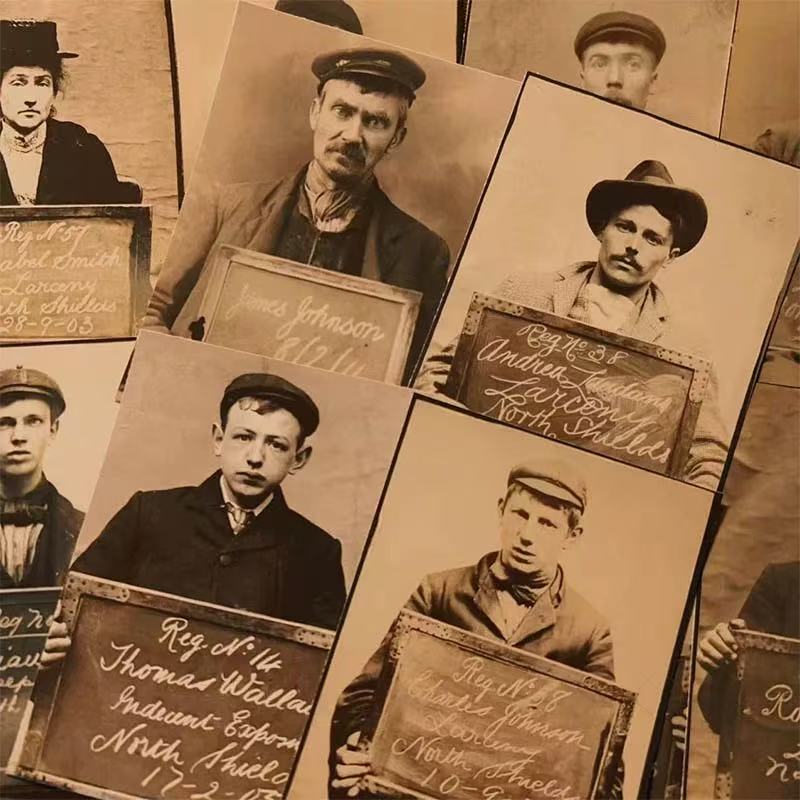 Reg N° 57
abel Smith
Larceny
th Shields
28-9-03
James Johnson
8/2/
Reg. N°. 38
Andrea
Larceny
North Shields
Reg. N°. 14
Thomas Walla
Indecent Expos
North Shield
17-2-0
Reg. N°
Charles Johnson
Larceny
North Shields
10-9-
Reg N
Ro